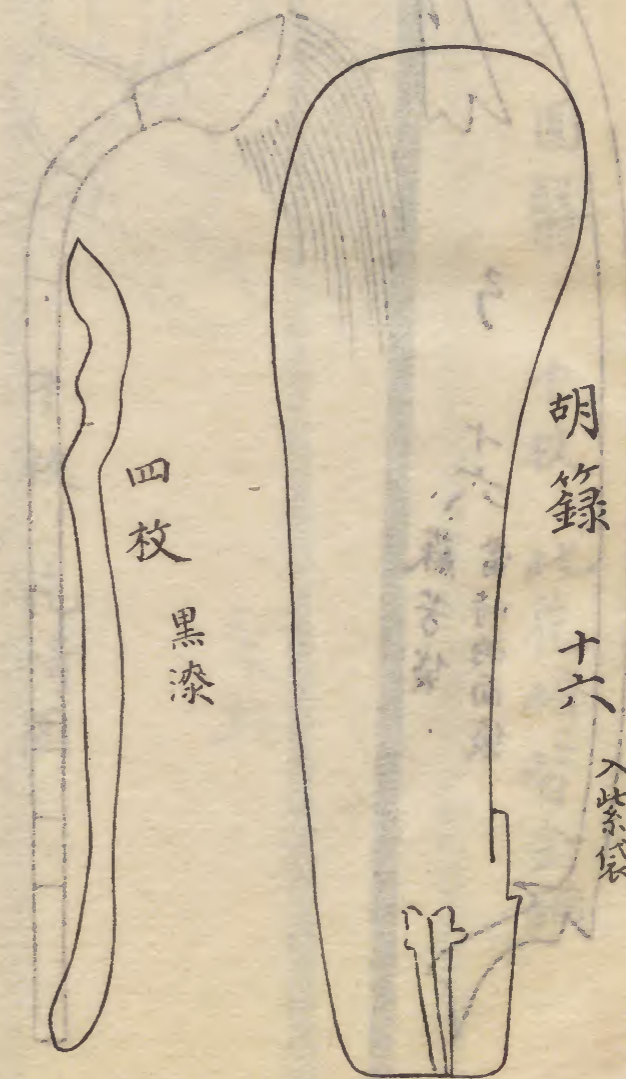 胡籙 十六
入紫袋
四枚 黒漆